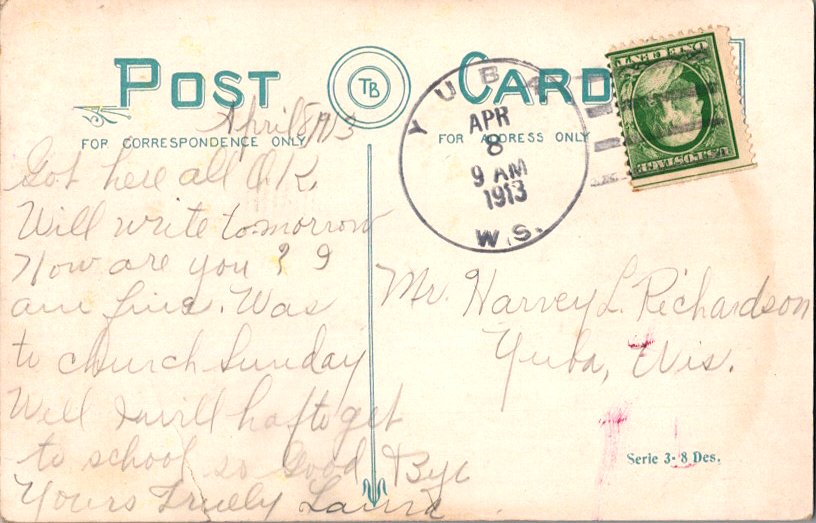 POST CARD
TB
FOR CORRESPONDENCE ONLY
FOR ADDRESS ONLY
YUBA
APR
8
9 AM
1913
WIS.
U.S. POSTAGE
April 8, 1913
Got here all O.K.
Will write tomorrow
How are you? I
am fine. Was
to church Sunday
Well I will haf to get
to school so Good Bye
Yours Truely Laura
Mr. Harvey L. Richardson
Yuba, Wis.
Serie 3-8 Des.